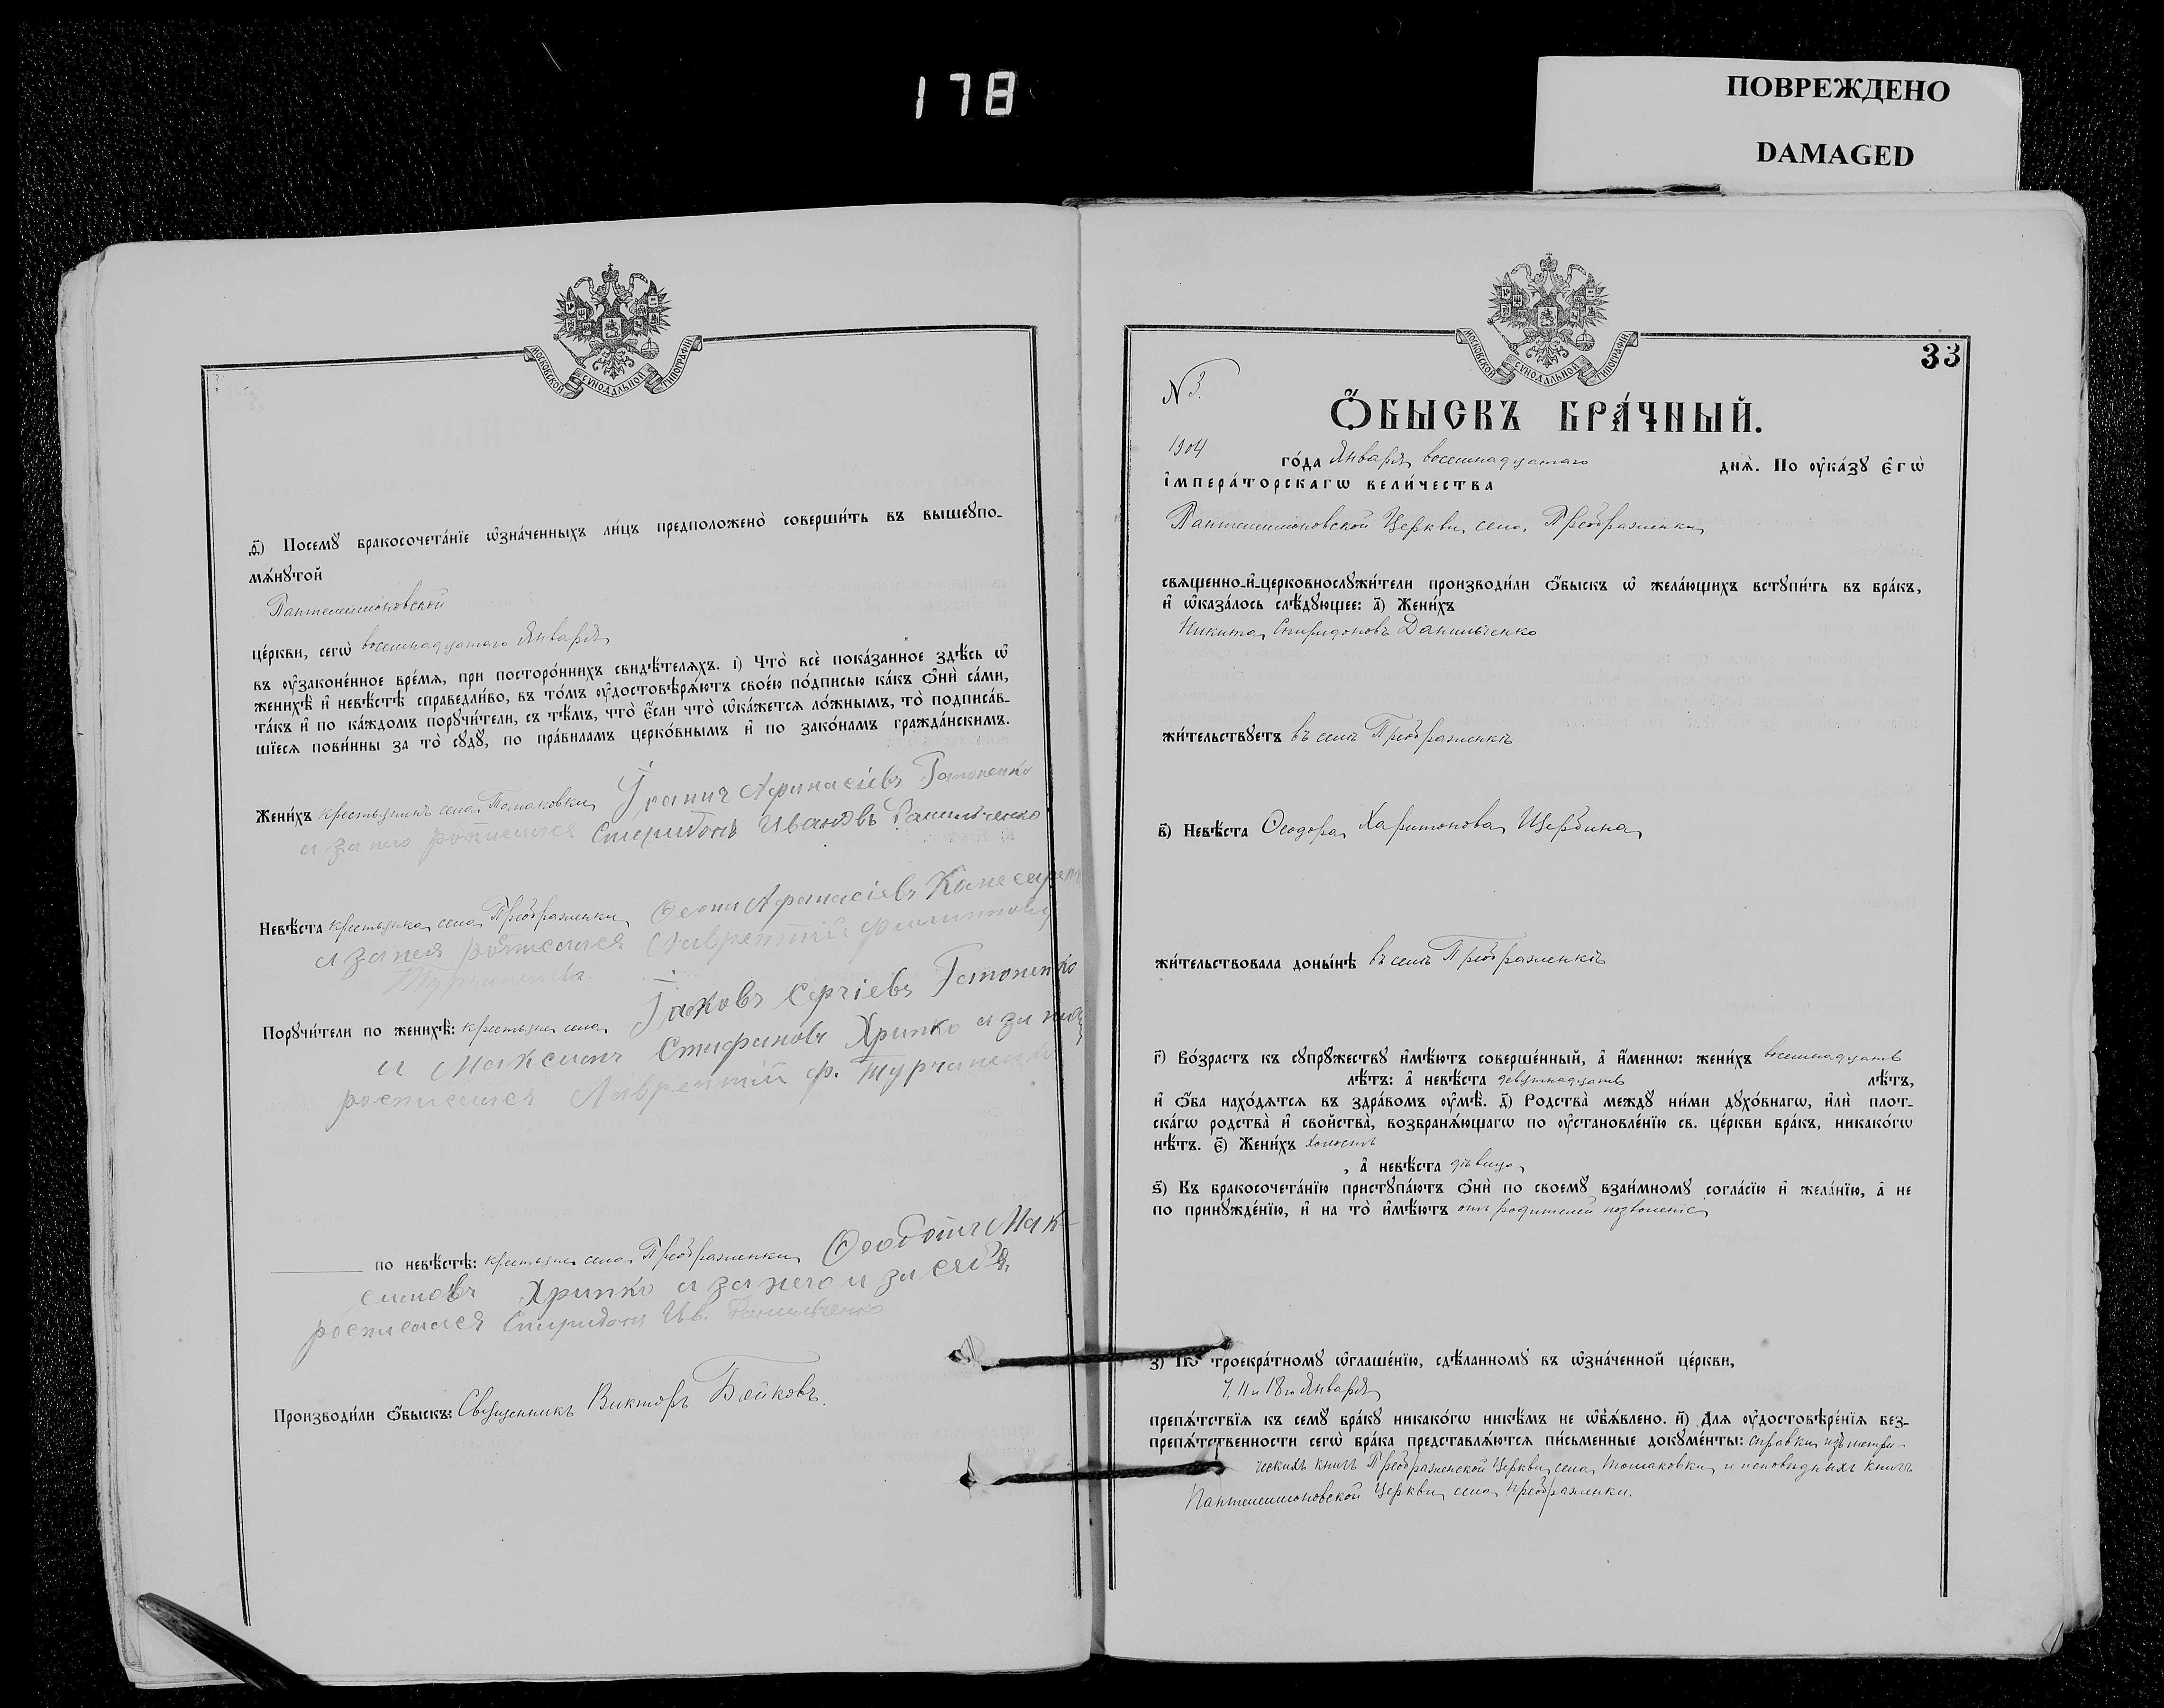 178
ПОВРЕЖДЕНО
DAMAGED
МОСКОВСКОЙ СѴНОДАЛЬНОЙ ТИПОГРАФІИ
ѳ҃) Посемꙋ бракосочета́нїе ѡ҆зна́ченныхъ ли́цъ предположено̀ соверши́ть въ вышеꙋпо-
мѧ́нꙋтой
Пантелеимоновской
це́ркви, сегѡ̀ восемнадцатаго Января
въ ᲂу҆законе́нное вре́мѧ, при посторо́ннихъ свидѣ́телѧхъ. і҃) Что̀ всѐ пока́занное здѣ́сь ѡ҆
женихѣ̀ и҆ невѣ́стѣ справедли́во, въ то́мъ ᲂу҆достовѣрѧ́ютъ свое́ю по́дписью ка́къ ѻ҆нѝ са́ми,
та́къ и҆ по ка́ждомъ порꙋчи́тели, съ тѣ́мъ, что̀ є҆́сли что̀ ѡ҆ка́жетсѧ ло́жнымъ, то̀ подписа́в-
шїесѧ пови́нны за то̀ сꙋдꙋ̀, по пра́виламъ церко́внымъ и҆ по зако́намъ гражда́нскимъ.
Жени́хъ крестьянинъ села Томаковки Афинасіевъ Гапоненко
а за него росписался Спиридонъ Ивановъ Данильченко
Невѣ́ста крестьянка села Преображенки Афанасіевъ
а за нея росписался Лаврентій Филипповъ
Порꙋчи́тели по женихѣ̀: крестьяне села Іаковъ Сергіевъ Гапоненко
и Максимъ Стефановъ Хрипко а за них
росписался Лаврентій Ф. Турчаненко
по невѣ́стѣ: крестьяне села Преображенки Феодотъ Мак-
симовъ Хрипко а за него и за себя
росписался Спиридонъ Ив. Данильченко
Производи́ли ѻ҆́быскъ: Священникъ Викторъ Бойковъ.
МОСКОВСКОЙ СѴНОДАЛЬНОЙ ТИПОГРАФІИ
33
N 3.
Ѻ҆́БЫСКЪ БРА́ЧНЫЙ.
1904 го́да Января восемнадцатаго днѧ̀. По ᲂу҆ка́зꙋ є҆гѡ̀
і҆мпера́торскагѡ вели́чества
Пантелеимоновской Церкви села Преображенки
свѧщенно-и҆-церковнослꙋжи́тели производи́ли ѻ҆́быскъ ѡ҆ жела́ющихъ встꙋпи́ть въ бра́къ,
и҆ ѡ҆каза́лось слѣ́дꙋющее: а҃) Жени́хъ
Никита Спиридоновъ Данильченко
жи́тельствꙋетъ въ селѣ Преображенкѣ
в҃) Невѣ́ста Феодора Харитонова Щербина
жи́тельствовала доны́нѣ въ селѣ Преображенкѣ
г҃) Во́зрастъ къ сꙋпрꙋ́жествꙋ и҆мѣ́ютъ соверше́нный, а҆ и҆́меннѡ: жени́хъ восемнадцать
лѣ́тъ: а҆ невѣ́ста девятнадцать лѣ́тъ,
и҆ ѻ҆́ба нахо́дѧтсѧ въ здра́вомъ ᲂу҆мѣ̀. д҃) Родства̀ междꙋ̀ ни́ми дꙋхо́внагѡ, и҆лѝ плот-
ска́гѡ родства̀ и҆ сво́йства, возбранѧ́ющагѡ по ᲂу҆становле́нїю св. це́ркви бра́къ, никако́гѡ
нѣ́тъ. є҃) Жени́хъ холостъ
, а҆ невѣ́ста дѣвица
ѕ҃) Къ бракосочета́нїю пристꙋпа́ютъ ѻ҆нѝ по своемꙋ̀ взаи́мномꙋ согла́сїю и҆ жела́нїю, а҆ не
по принꙋжде́нїю, и҆ на то̀ и҆мѣ́ютъ отъ родителей позволеніе
з҃) По троекра́тномꙋ ѡ҆глаше́нїю, сдѣ́ланномꙋ въ ѡ҆зна́ченной це́ркви,
7, 11 и 18го Января
препѧ́тствїѧ къ семꙋ̀ бра́кꙋ никако́гѡ никѣ́мъ не ѡ҆бъѧ́влено. и҃) Длѧ ᲂу҆достовѣре́нїѧ без-
препѧ́тственности сегѡ̀ бра́ка представлѧ́ютсѧ пи́сьменные докꙋме́нты: справки изъ метри-
ческихъ книгъ Преображенской Церкви села Томаковки и исповѣдныхъ книгъ
Пантелеимоновской Церкви села Преображенки.